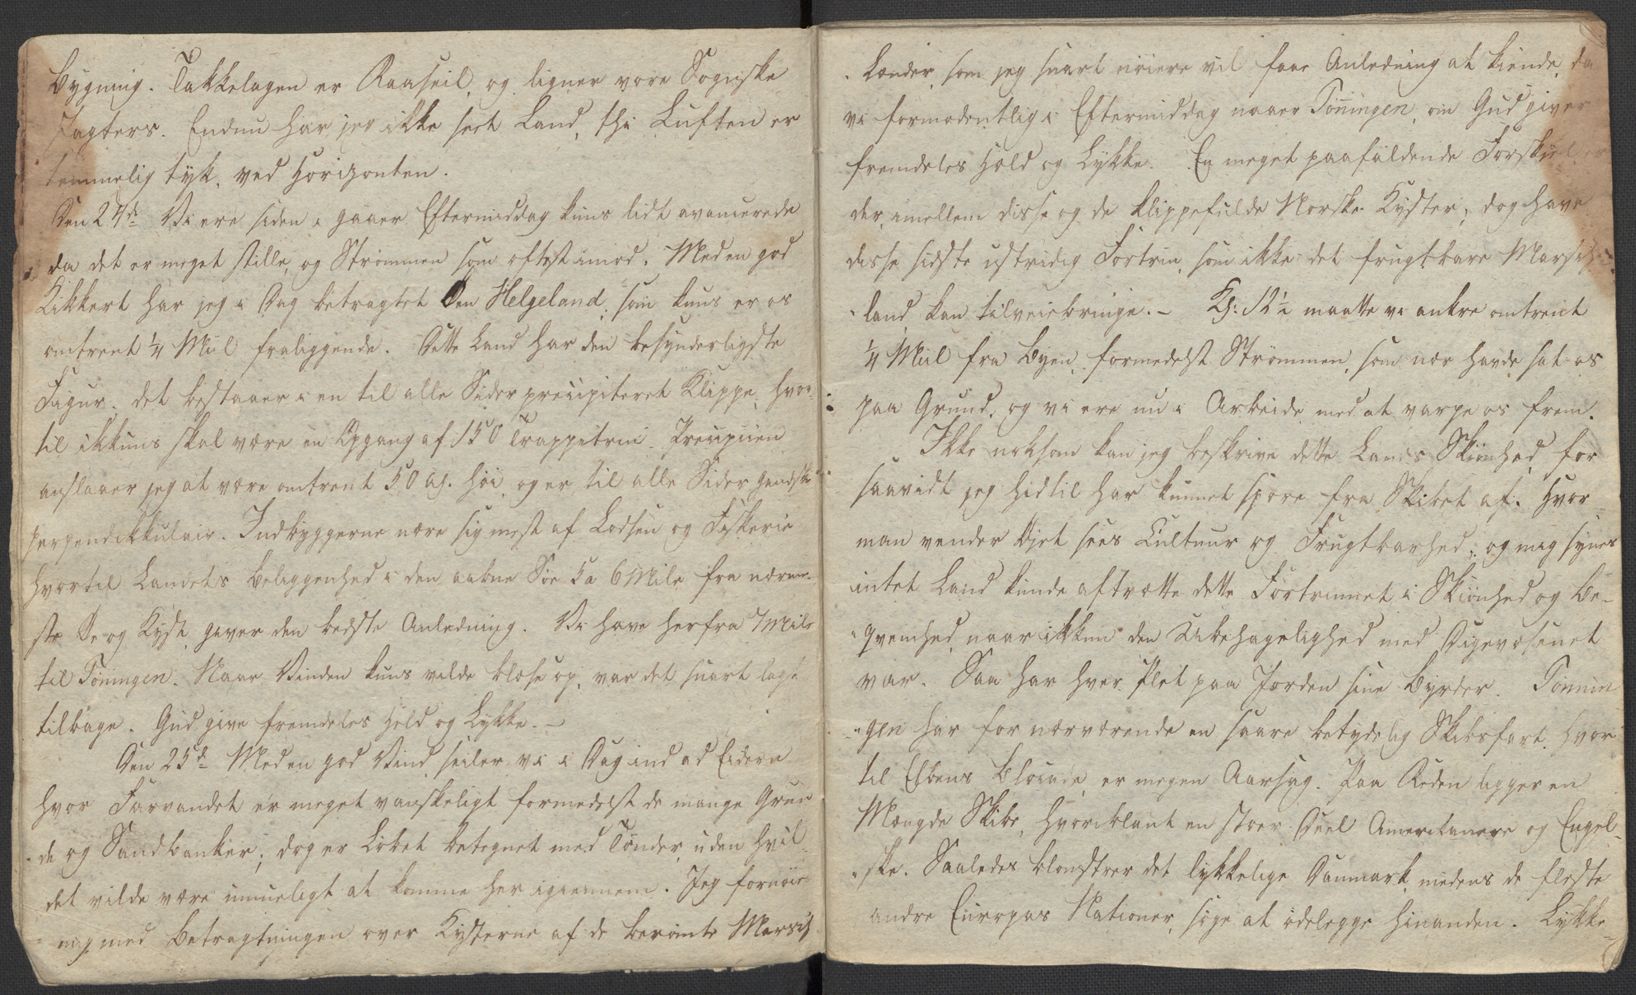 Bygning. Takkelagen er Raaseil, og ligner vore Sognske
Jagters. Endnu har jeg ikke seet Land, thi Luften er
temmelig tyk, ved Horizonten.
Den 24de Vi ere siden i gaaer Eftermiddag kuns lidt avancerede
da det er meget stille, og Strømmen som oftest imod. Med en god
Kikkert har jeg i Dag betragtet Øen Helgeland, som kuns er os
omtrent 1/4 Miil fraliggende. Dette Land har den besynderligste
Figur. det bestaaer i en til alle Sider precipiteret Klippe, hvor-
til ikkuns skal være en Opgang af 150 Trappetrin. Precipiien
anslaaer jeg at være omtrent 50 Al. høi, og er til alle Sider gandske
perpendikkulair. Indbyggerne nære sig mest af Lodsen og Fiskerie
hvortil Landets Beliggenhed i den aabne Søe ca 6 Mile fra nærme-
ste Øe og Kyst, giver den bedste Anledning. Vi have herfra 7 Mile
til Tønningen. Naar Vinden kuns vilde blæse op, var det snart lagt
tilbage. Gud give fremdeles Held og Lykke. –
Den 25de Med en god Vind seiler vi i Dag ind ad Eideren
hvor Farvandet er meget vanskeligt formedelst de mange Grun-
de og Sandbanker; dog er Løbet betegnet med Tønder, uden hvil-
det vilde være umueligt at komme her igiennem. Jeg fornøier
mig med Betragtningen over Kysterne af de berømte Marsch
Lænder, som jeg snart nøiere vil faae Anledning at kiende, da
vi formodentlig i Eftermiddag naaer Tønningen, om Gud giver
fremdeles Held og Lykke. En meget paafaldende Forskiel er
der imellem disse og de klippefulde Norske Kyster; dog have
disse sidste ustridig Fortrin, som ikke det frugtbare Marsch-
land kan tilveiebringe. – Kl: 12½ maatte vi ankre omtrent
1/4 Miil fra Byen, formedelst Strømmen, som nær havde sat os
paa Grund, og vi ere nu i Arbeide med at varpe os frem.
Ikke noksom kan jeg beskrive dette Lands Skiønhed, for
saavidt jeg hidtil har kunnet spore fra Skibet af. Hvor
man vender Øjet sees Cultuur og Frugtbarhed; og mig synes
intet Land kunde aftrætte dette Fortrinnet i Skiønhed og Be-
qvemhed, naar ikkun den Ubehagelighed med Digevæsenet
var. Saa har hver Plet paa Jorden sine Byrder. Tønnin-
gen har for nærværende en saare betydelig Skibsfart, hvor-
til Elbens Blocade er megen Aarsag. Paa Reden ligger en
Mængde Skibe, hvoriblant en stoer Deel Amerikanere og Engel-
ske. Saaledes blomstrer det lykkelige Danmark, medens de fleste
andre Europas Nationer, søge at ødelegge hinanden. Lykke-